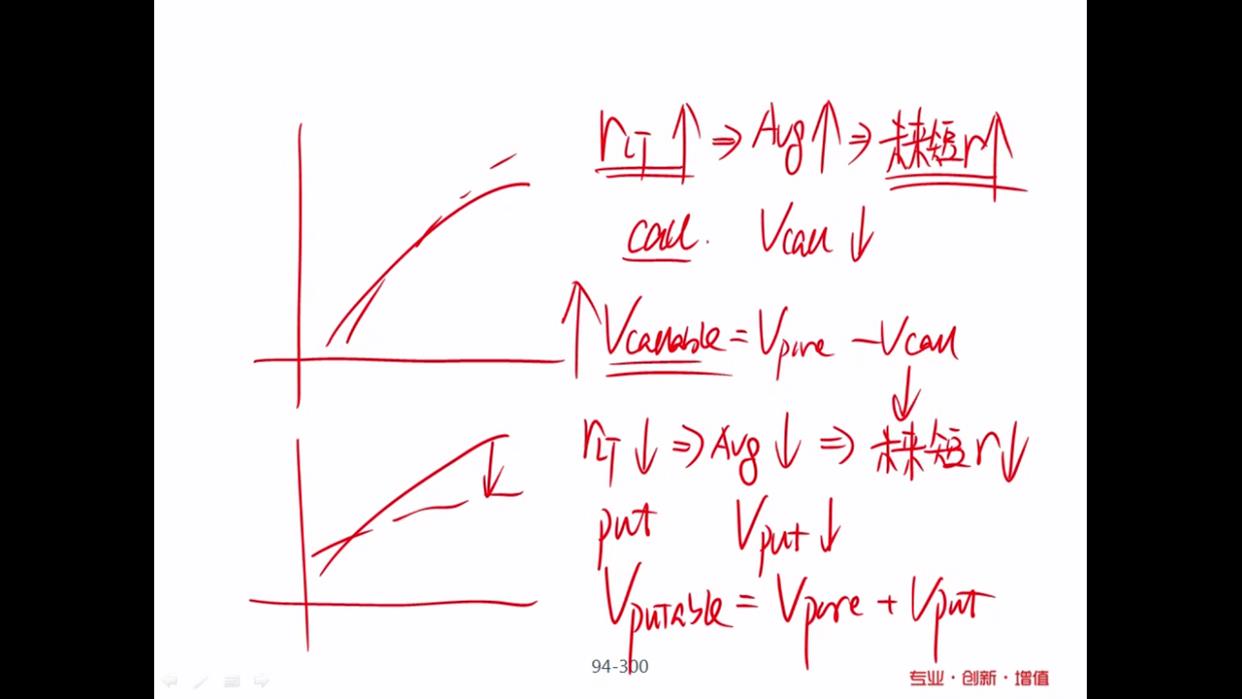 r_LT ↑ ⇒ Avg ↑ ⇒ 未来短r↑
call. Vcall ↓
↑ Vcallable = Vpure - Vcall
↓
r_LT ↓ ⇒ Avg ↓ ⇒ 未来短r↓
put Vput ↓
Vputable = Vpure + Vput
94-300
专业·创新·增值